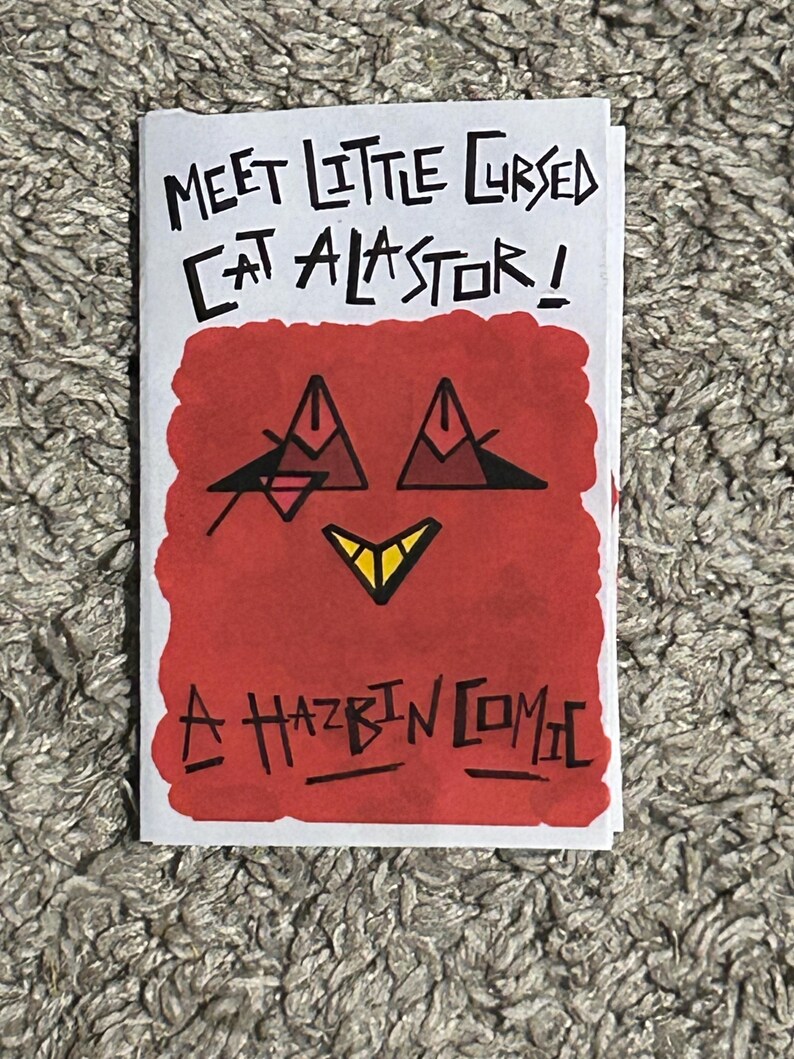 MEET LITTLE CURSED
CAT ALASTOR!
A HAZBIN COMIC